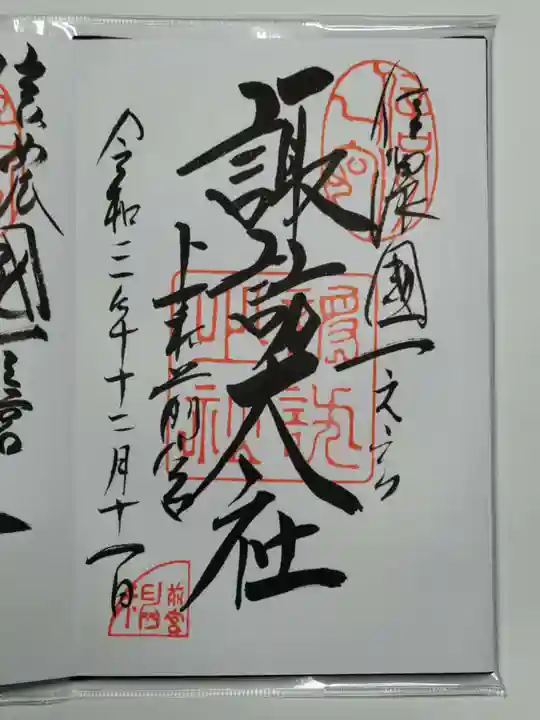 信濃國一之宮
諏訪大社
上社前宮
令和三年十二月十一日
前宮
信濃國一之宮